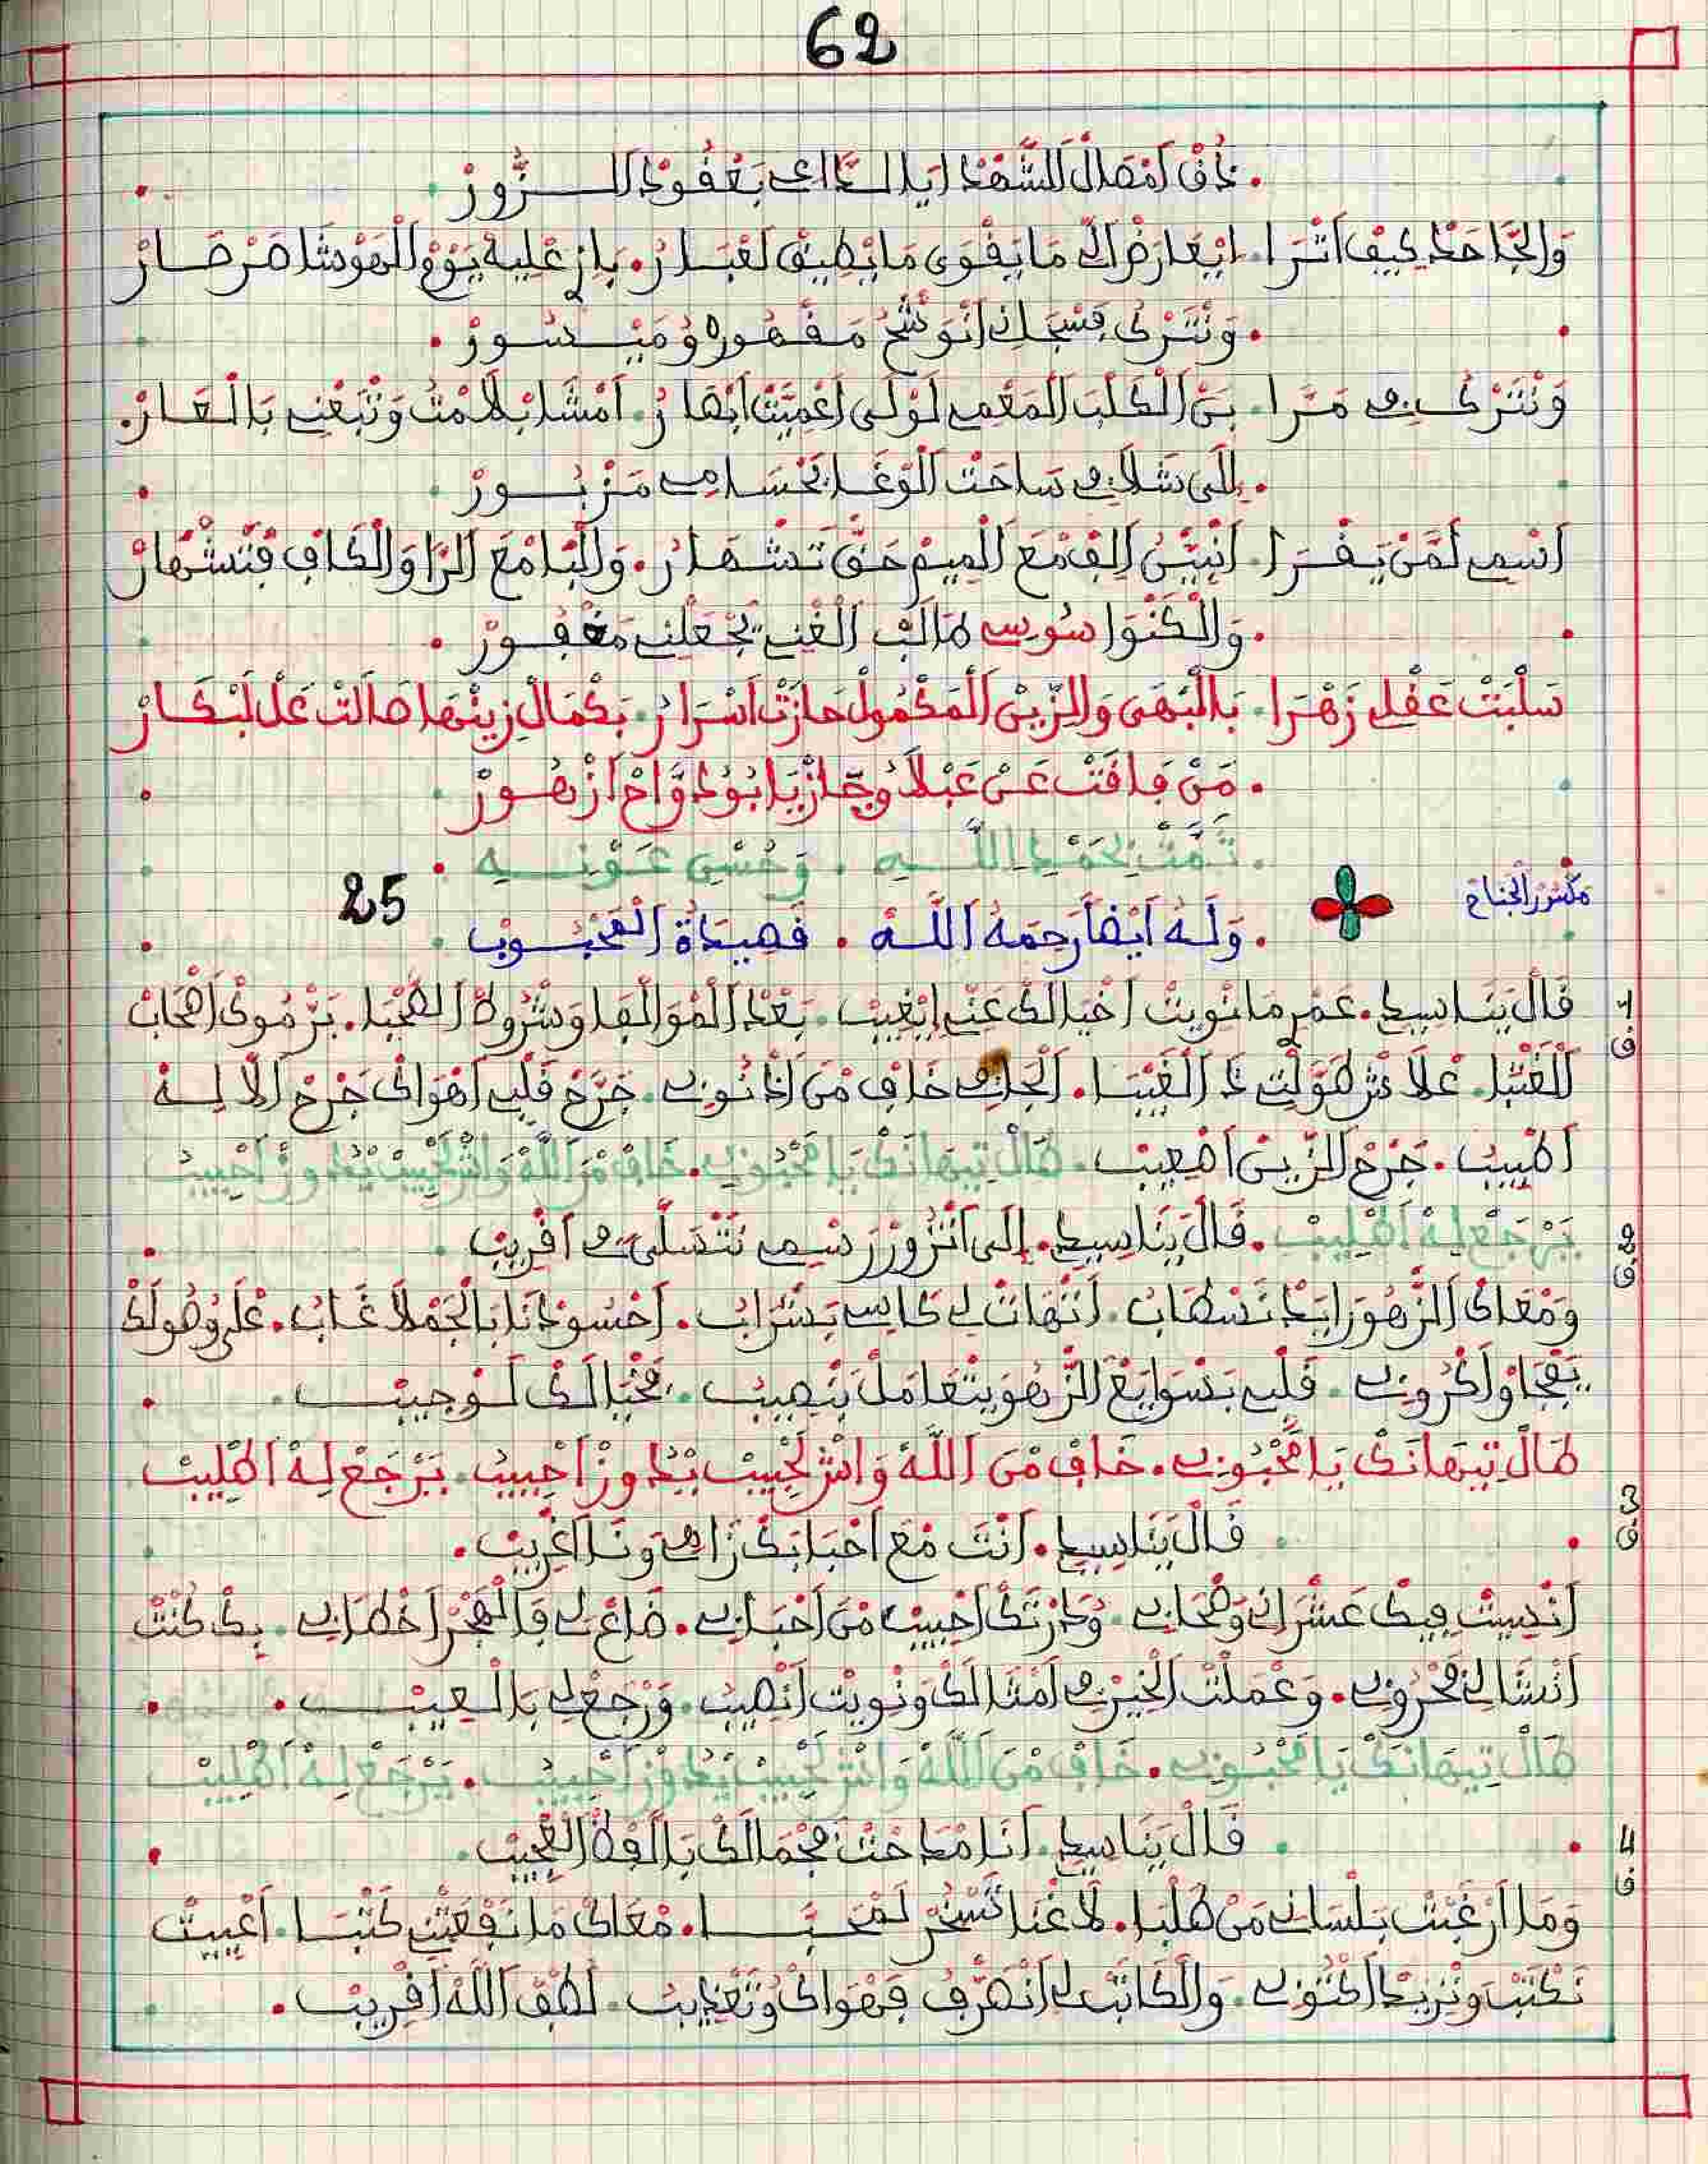 62
ذُقْ أَمْصَالْ الشَّهْدْ ايَا الدَّاعِي بَعْقُودْ الزُّورْ
وَالْجَاحَدْ كِيفْ اتْرَا. ايْعَارَضْ الِّي مَا يَقْوَى مَا يْطِيقْ لَغْبَارُ. بَازْ عْلِيهْ يَوْمْ الْهَوْشَا صَرْصَارْ
وَنْتَرْكُ فَسْجَانْ انْوَشْحُ مَقْهُورْ وُ مَيْسُورْ
وَنْتَرْكُ فِي مَرَّا. بَنْ الْكَلْبْ الْمَعْمِي لَوْلَى اعْمِيَتْ ابْصَارُ. امْشَا بْلَامْتُ وَتْبَعْنِي بَالْعَارْ.
إِلَى تْلَاقِي سَاحَتْ الْوْغَا بَحْسَامِي مَزْبُورْ
اسْمِي لَمَّنْ يَقْرَا. انْبَيّْنُ الِفْ مْعَ الْمِيمْ حَتَّى تَشْهَارُ. وَالْبَا مْعَ الرَّا وَالْكَافْ فْتَشْهَارْ
وَالْكَنْوَا سُوسِي طَالَبْ الْغْنِي يَجْعَلْنِي مَغْفُورْ
سَلْبَتْ عَقْلِي زَهْرَا. بَالْبْهَى وَالزِّينْ الْمَكْمُولْ حَازَتْ اسْرَارُ. بَكْمَالْ زِينْهَا صَالَتْ عَلْ لَبْكَارْ
مَنْ فَاقَتْ عَنْ عَبْلَا وُجَازْيَا بُودْوَاحْ ازْهُورْ
تَمَّتْ بِحَمْدِ اللَّهِ. وَحُسْنِ عَوْنِهِ
مكسور الجناح
25
وَلَهُ أَيْضاً رَحِمَهُ اللَّهُ. قَصِيدَةُ الْمَحْبُوبْ
1 ق
قَالْ يَنَاسِيدِي. عَمْرِ مَا نْوِيتْ اخْيَالَكْ عَنِّي ايْغِيبْ. بَعْدْ الْمْوَالْفَا وَشْرُوطْ الصَّحْبَا. بَرْمُوكْ اصْحَابْ
الْغَتْبَا. عْلَاشْ طَوَّلْتِي ذَا الْغَيْبَا. الْجَافِي خَافْ مْنْ اذْنُوبِي. جَرَّحْ قَلْبِي اهْوَاكْ جَرْحْ الَّا لِهْ
اطْبِيبْ. جَرْحْ الزِّينْ اصْعِيبْ. طَالْ تِيهَانَكْ يَا مَحْبُوبِي. خَافْ مْنْ اللَّهْ وَاشْ لَحْبِيبْ يْدَاوَزْ احْبِيبْ
يَرْجَعْ لِهْ اطْلِيبْ. قَالْ يَنَاسِيدِي. إِلَى انْزُورْ رَسْمِي نَتْسَلَّى فِي اقْرِيبْ
2 ق
وَمْعَاكْ الزَّهُو زَايَدْ نَسْطَابْ. انْتَهَاتْ لِي كَاسِي بَشْرَابْ. احْسُودْنَا بَالْجَمْلَا غَابْ. عْلَى وْصُولَكْ
يَفْجَاوْ اكْرُوبِي. قَلْبِي بَسْوَايَعْ الزَّهُو يَتْعَامَلْ يَنْصِيبْ. مَحْيَالَكْ لَوْجِيبْ
طَالْ تِيهَانَكْ يَا مَحْبُوبِي. خَافْ مْنْ اللَّهْ وَاشْ لَحْبِيبْ يْدَاوَزْ احْبِيبْ. يَرْجَعْ لِهْ اطْلِيبْ
3 ق
قَالْ يَنَاسِيدِي. انْتَ مْعَ احْبَابَكْ زَاهِي وَنَا اغْرِيبْ.
انْسِيتْ فِيكْ عَشْرَانِي وَصْحَابِي. وُدَرْتَكْ احْبِيبْ مْنْ احْبَابِي. ضَاعْ لِي فَالْهْجَرْ اخْطَابِي. بِكْ كُنْتْ
انْسَّالِي مَحْرُوبِي. وَعْمَلْتْ الْخِيرْ فِي امْثَالَكْ وَنْوِيتْ انْصِيبْ. وَرْجَعْ لِي بَالْعِيبْ.
طَالْ تِيهَانَكْ يَا مَحْبُوبِي. خَافْ مْنْ اللَّهْ وَاشْ لَحْبِيبْ يْدَاوَزْ احْبِيبْ. يَرْجَعْ لِهْ اطْلِيبْ
4 ق
قَالْ يَنَاسِيدِي. انَا مْدَحْتْ فَجْمَالَكْ بَالْفْظْ الْعْجِيبْ.
وَمَا ارْغَبْتْ بَلْسَانِي مَنْ طَلْبَا. لَاغْنَا تَسْخَرْ لَمْحَبَّا. مْعَاكْ مَا نَفْعَتْنِي كَتْبَا. اعْيِيتْ
نَكْتَبْ وَنْزِيدْ اكْتُوبِي. وَالْكَاتَبْ لِي انْصَرَّفُ فَهْوَاكْ وُتَعْذِيبْ. لَطْفْ اللَّهْ اقْرِيبْ.